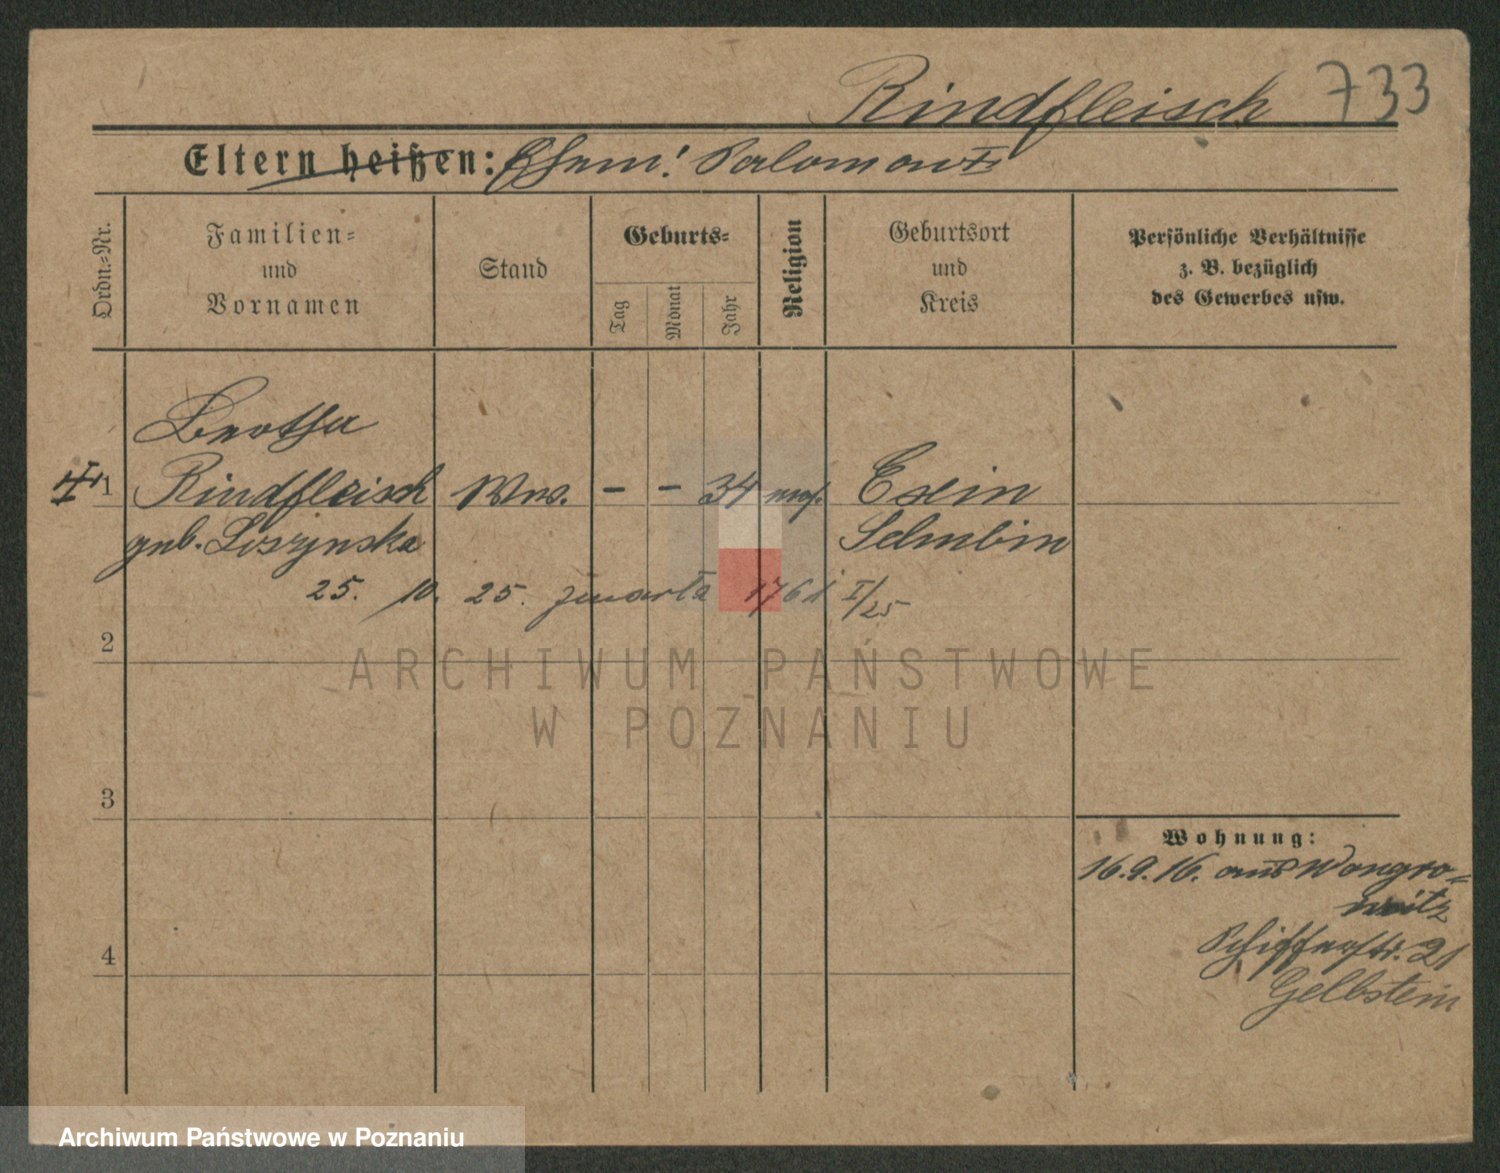 Rindfleisch 733
Eltern heißen: Ehem: Salomon †
Ordn.-Nr.
Familien=
und
Vornamen
Stand
Geburts=
Tag
Monat
Jahr
Religion
Geburtsort
und
Kreis
Persönliche Verhältnisse
z. B. bezüglich
des Gewerbes usw.
Bertha
1 Rindfleisch Ww. – – 34 mos. Exin
geb. Loszynska Schubin
25. 10. 25. zmarła 1761 I/25
2
3
4
Wohnung:
16.9.16. aus Wongro=
witz
Schifferstr. 21
Gelbstein
ARCHIWUM PAŃSTWOWE
W POZNANIU
Archiwum Państwowe w Poznaniu